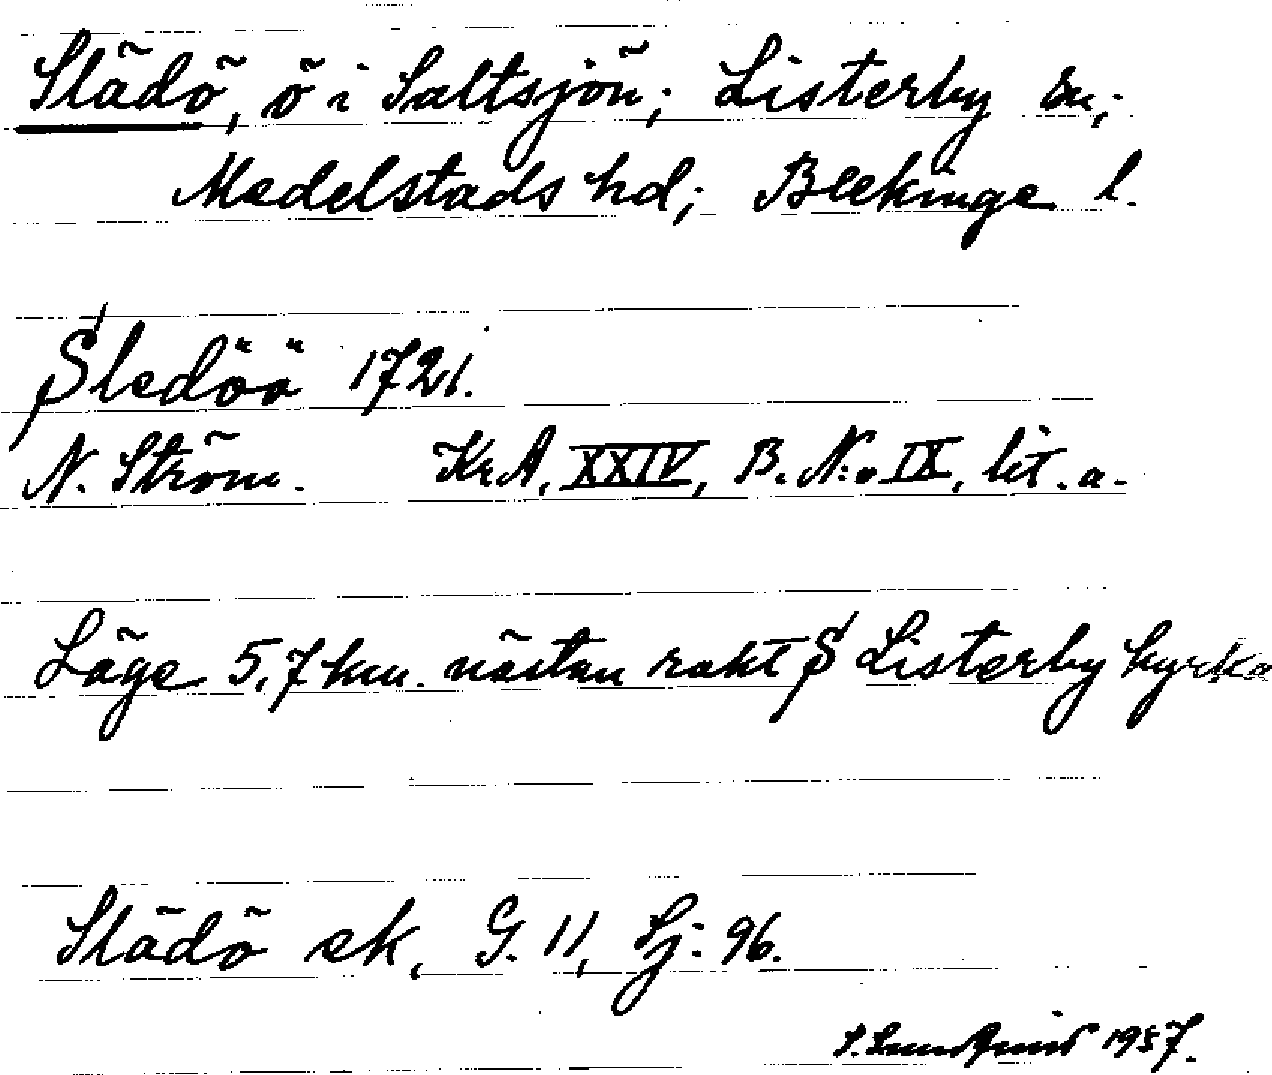 Slädö, ö i Saltsjön; Listerby sn,;
Medelstads hd; Blekinge l.
Sledöö 1721.
N. Ström. Kr.A, XXIV, B. N:o IX, lit. a.
Läge 5,7 km. nästan rakt S Listerby kyrka
Slädö ek, G. 11, Sj: 96.
S. Lundquist 1957.